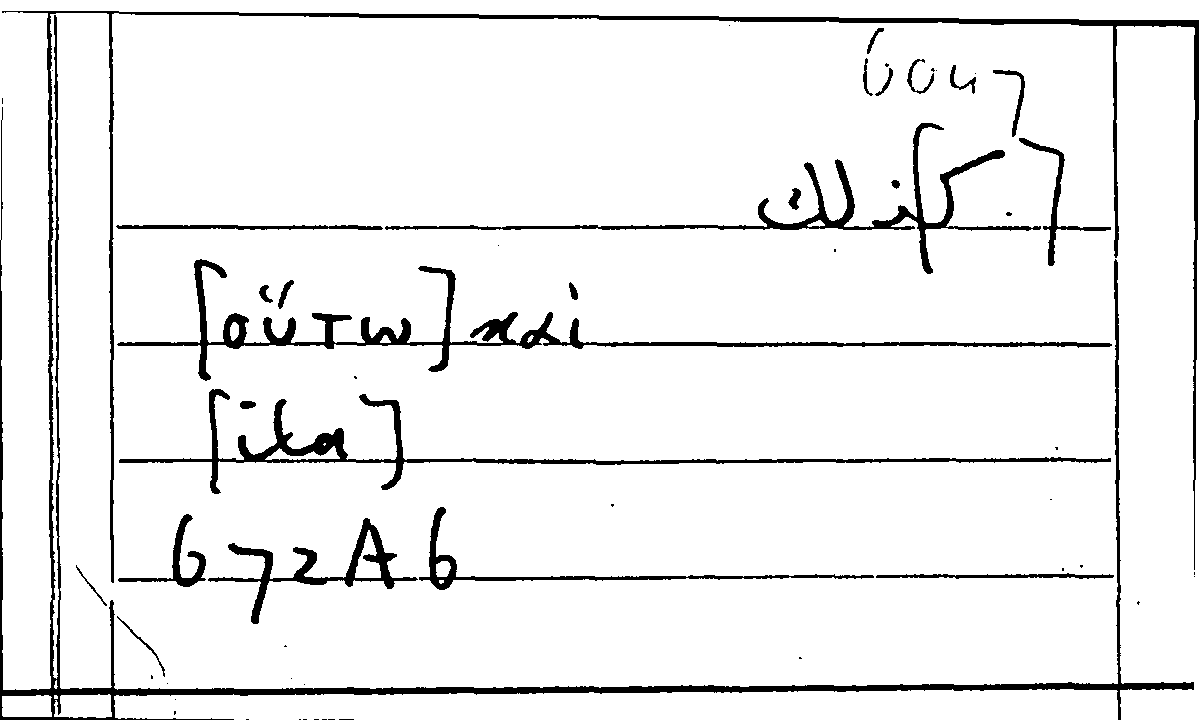 6047
[كذلك]
[οὕτω] καὶ
[ita]
672A6